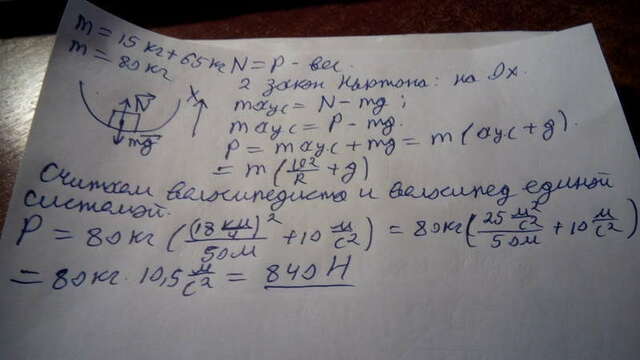 m = 15 кг + 65 кг N = P - вес.
m = 80 кг 2 закон Ньютона: на Ox.
N X maус = N - mg;
mg maус = P - mg.
P = maус + mg = m(aус + g).
= m(υ²/R + g)
Считаем велосипедиста и велосипед единой
системой.
P = 80 кг ((18 км/ч)²/50м + 10 м/с²) = 80кг(25 м²/с²/50м + 10 м/с²)
= 80кг · 10,5 м/с² = 840 Н